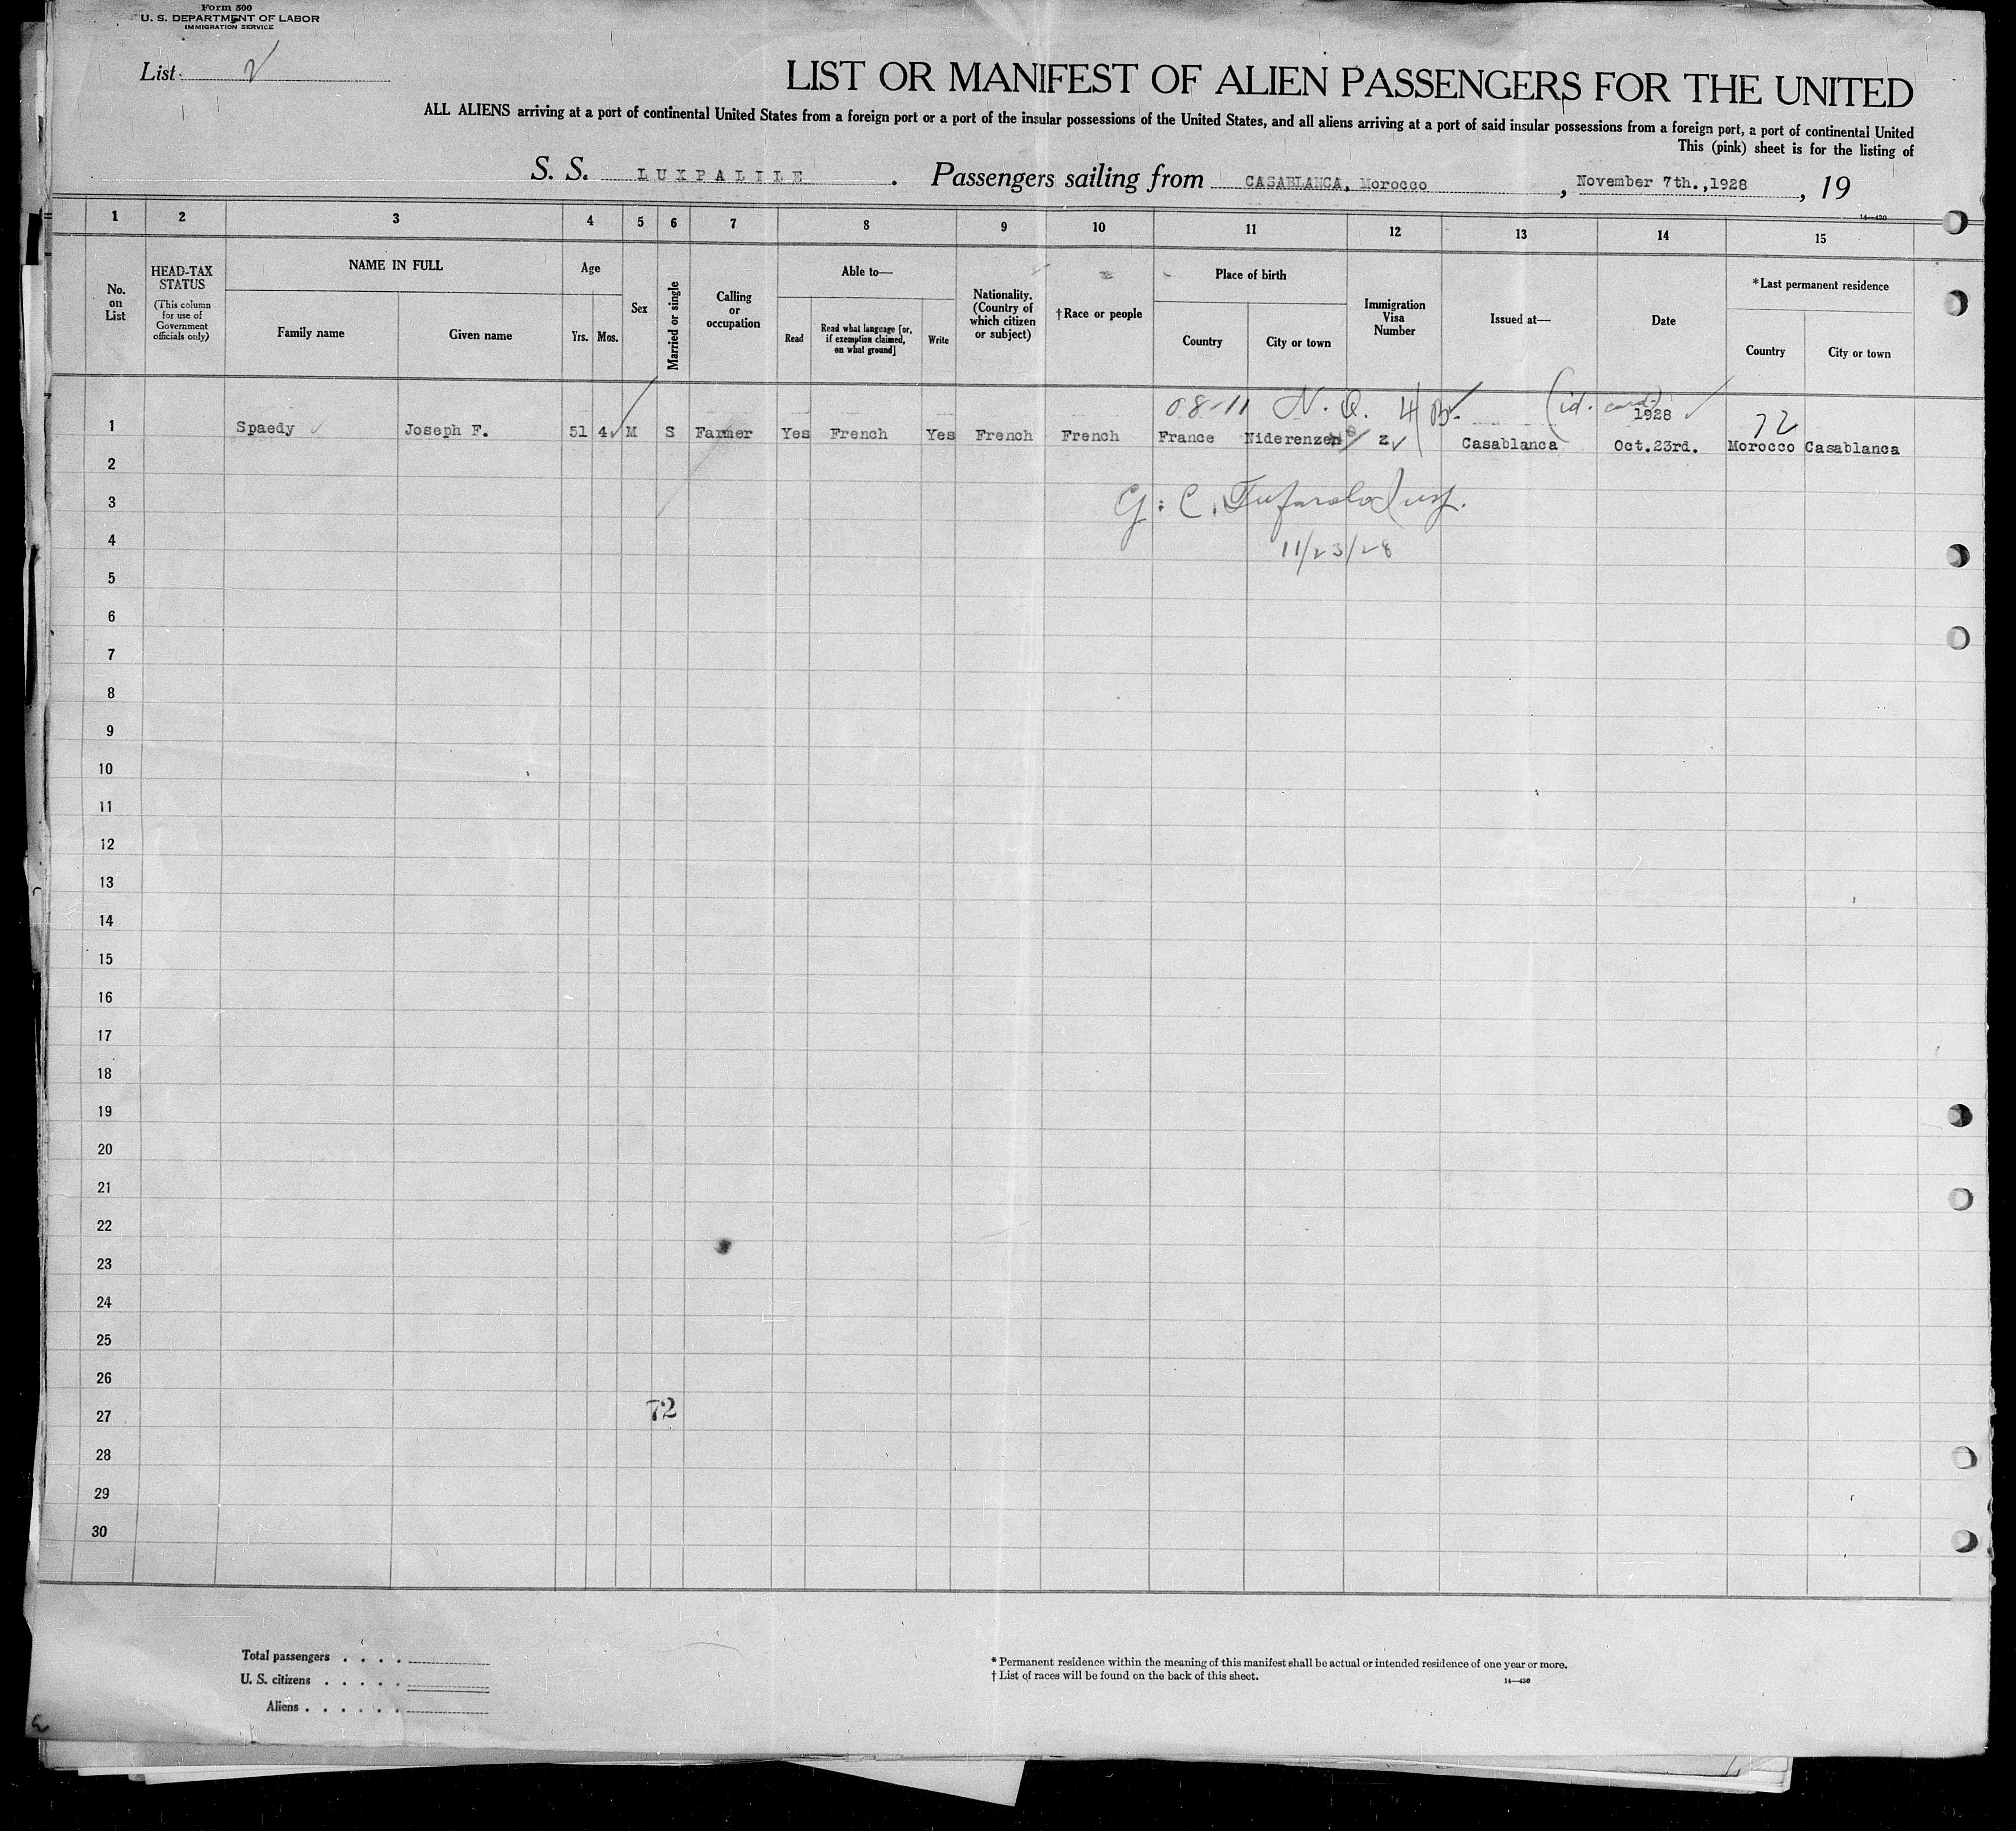 Form 500
U. S. DEPARTMENT OF LABOR
IMMIGRATION SERVICE
List 2
LIST OR MANIFEST OF ALIEN PASSENGERS FOR THE UNITED
ALL ALIENS arriving at a port of continental United States from a foreign port or a port of the insular possessions of the United States, and all aliens arriving at a port of said insular possessions from a foreign port, a port of continental United
This (pink) sheet is for the listing of
S. S. LUXPALILE . Passengers sailing from CASABLANCA, Morocco , November 7th.,1928 , 19
14—430
1 2 3 4 5 6 7 8 9 10 11 12 13 14 15
No. on List
HEAD-TAX STATUS
(This column for use of Government officials only)
NAME IN FULL
Family name
Given name
Age
Yrs. Mos.
Sex
Married or single
Calling or occupation
Able to—
Read
Read what language [or, if exemption claimed, on what ground]
Write
Nationality. (Country of which citizen or subject)
†Race or people
Place of birth
Country
City or town
Immigration Visa Number
Issued at—
Date
*Last permanent residence
Country
City or town
08-11 N. Q. 4 B (id. card) 1928 72
1 Spaedy Joseph F. 51 4 M S Farmer Yes French Yes French French France Niderenzen 2 Casablanca Oct.23rd. Morocco Casablanca
2
3 G. C.
4 11/23/28
5
6
7
8
9
10
11
12
13
14
15
16
17
18
19
20
21
22
23
24
25
26
27 72
28
29
30
Total passengers . . . .
U. S. citizens . . . . .
Aliens . . . . . .
* Permanent residence within the meaning of this manifest shall be actual or intended residence of one year or more.
† List of races will be found on the back of this sheet.
14—430